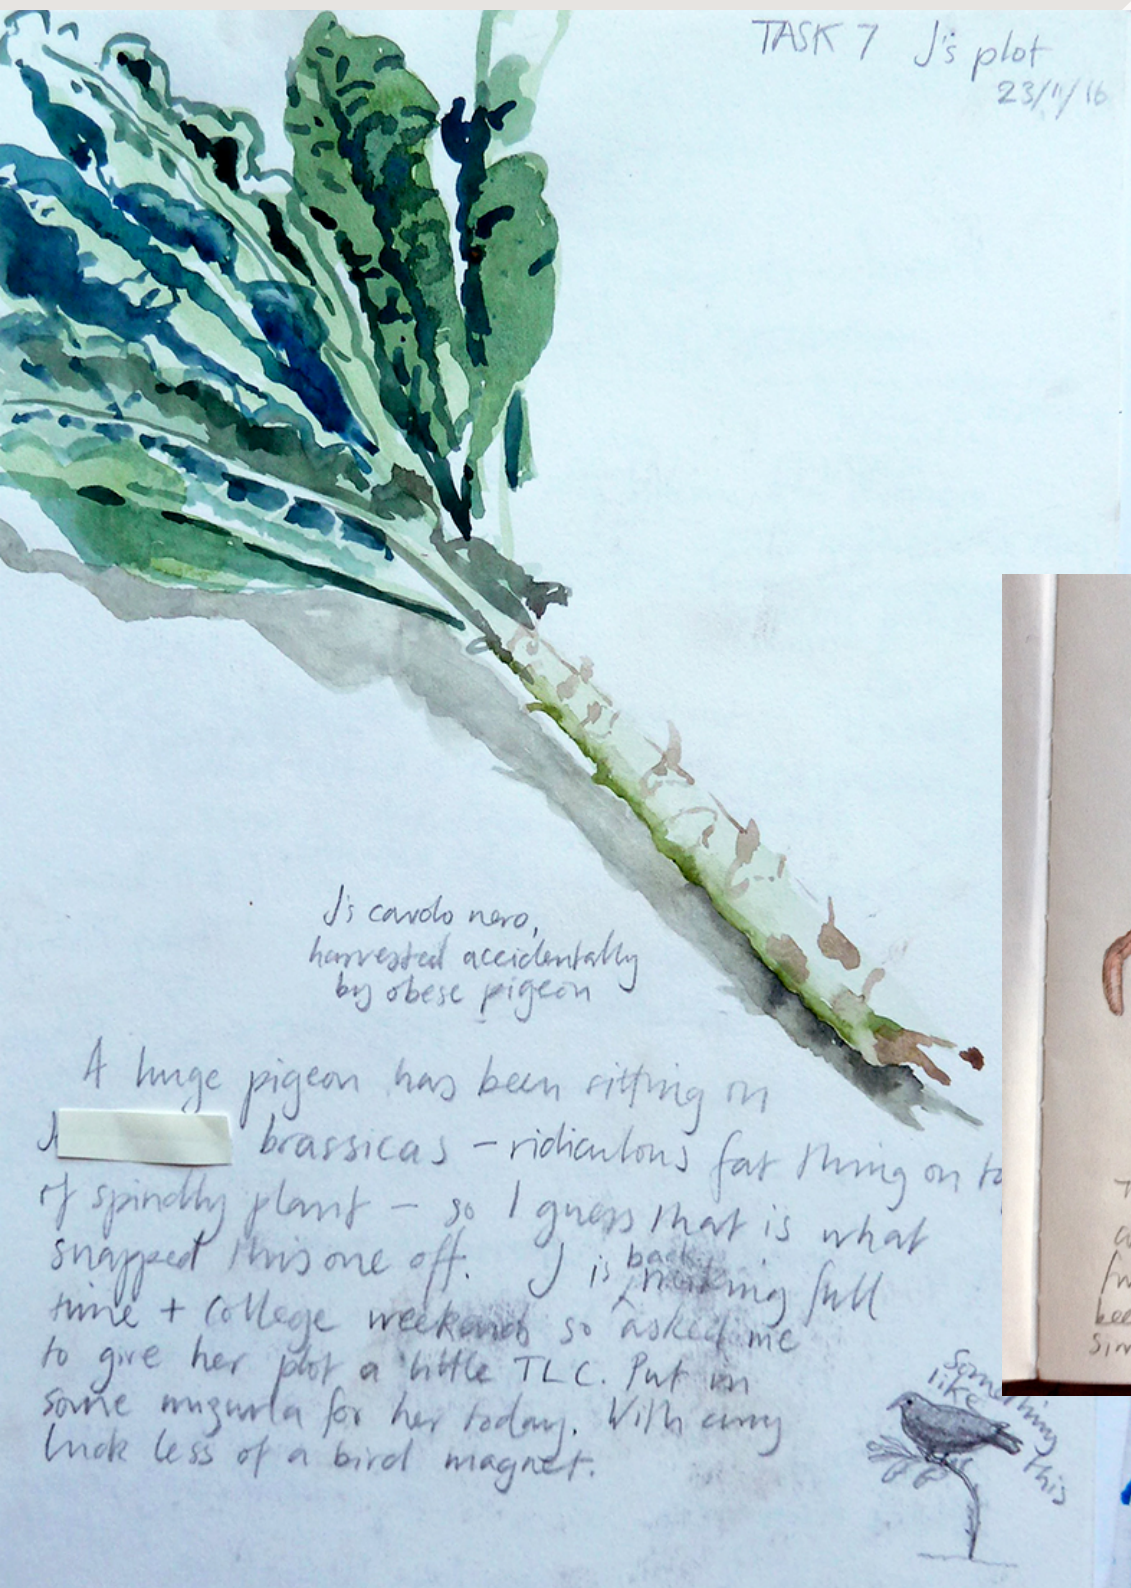 TASK 7 J's plot
23/11/16
J's cavolo nero,
harvested accidentally
by obese pigeon
A huge pigeon has been sitting on
J brassicas – ridiculous fat thing on
of spindly plant – so I guess that is what
snapped this one off. J is back
full
time + college weekends so asked me
to give her plot a little TLC. Put in
some mizuna for her today. With any
luck less of a bird magnet.
Something
like
this